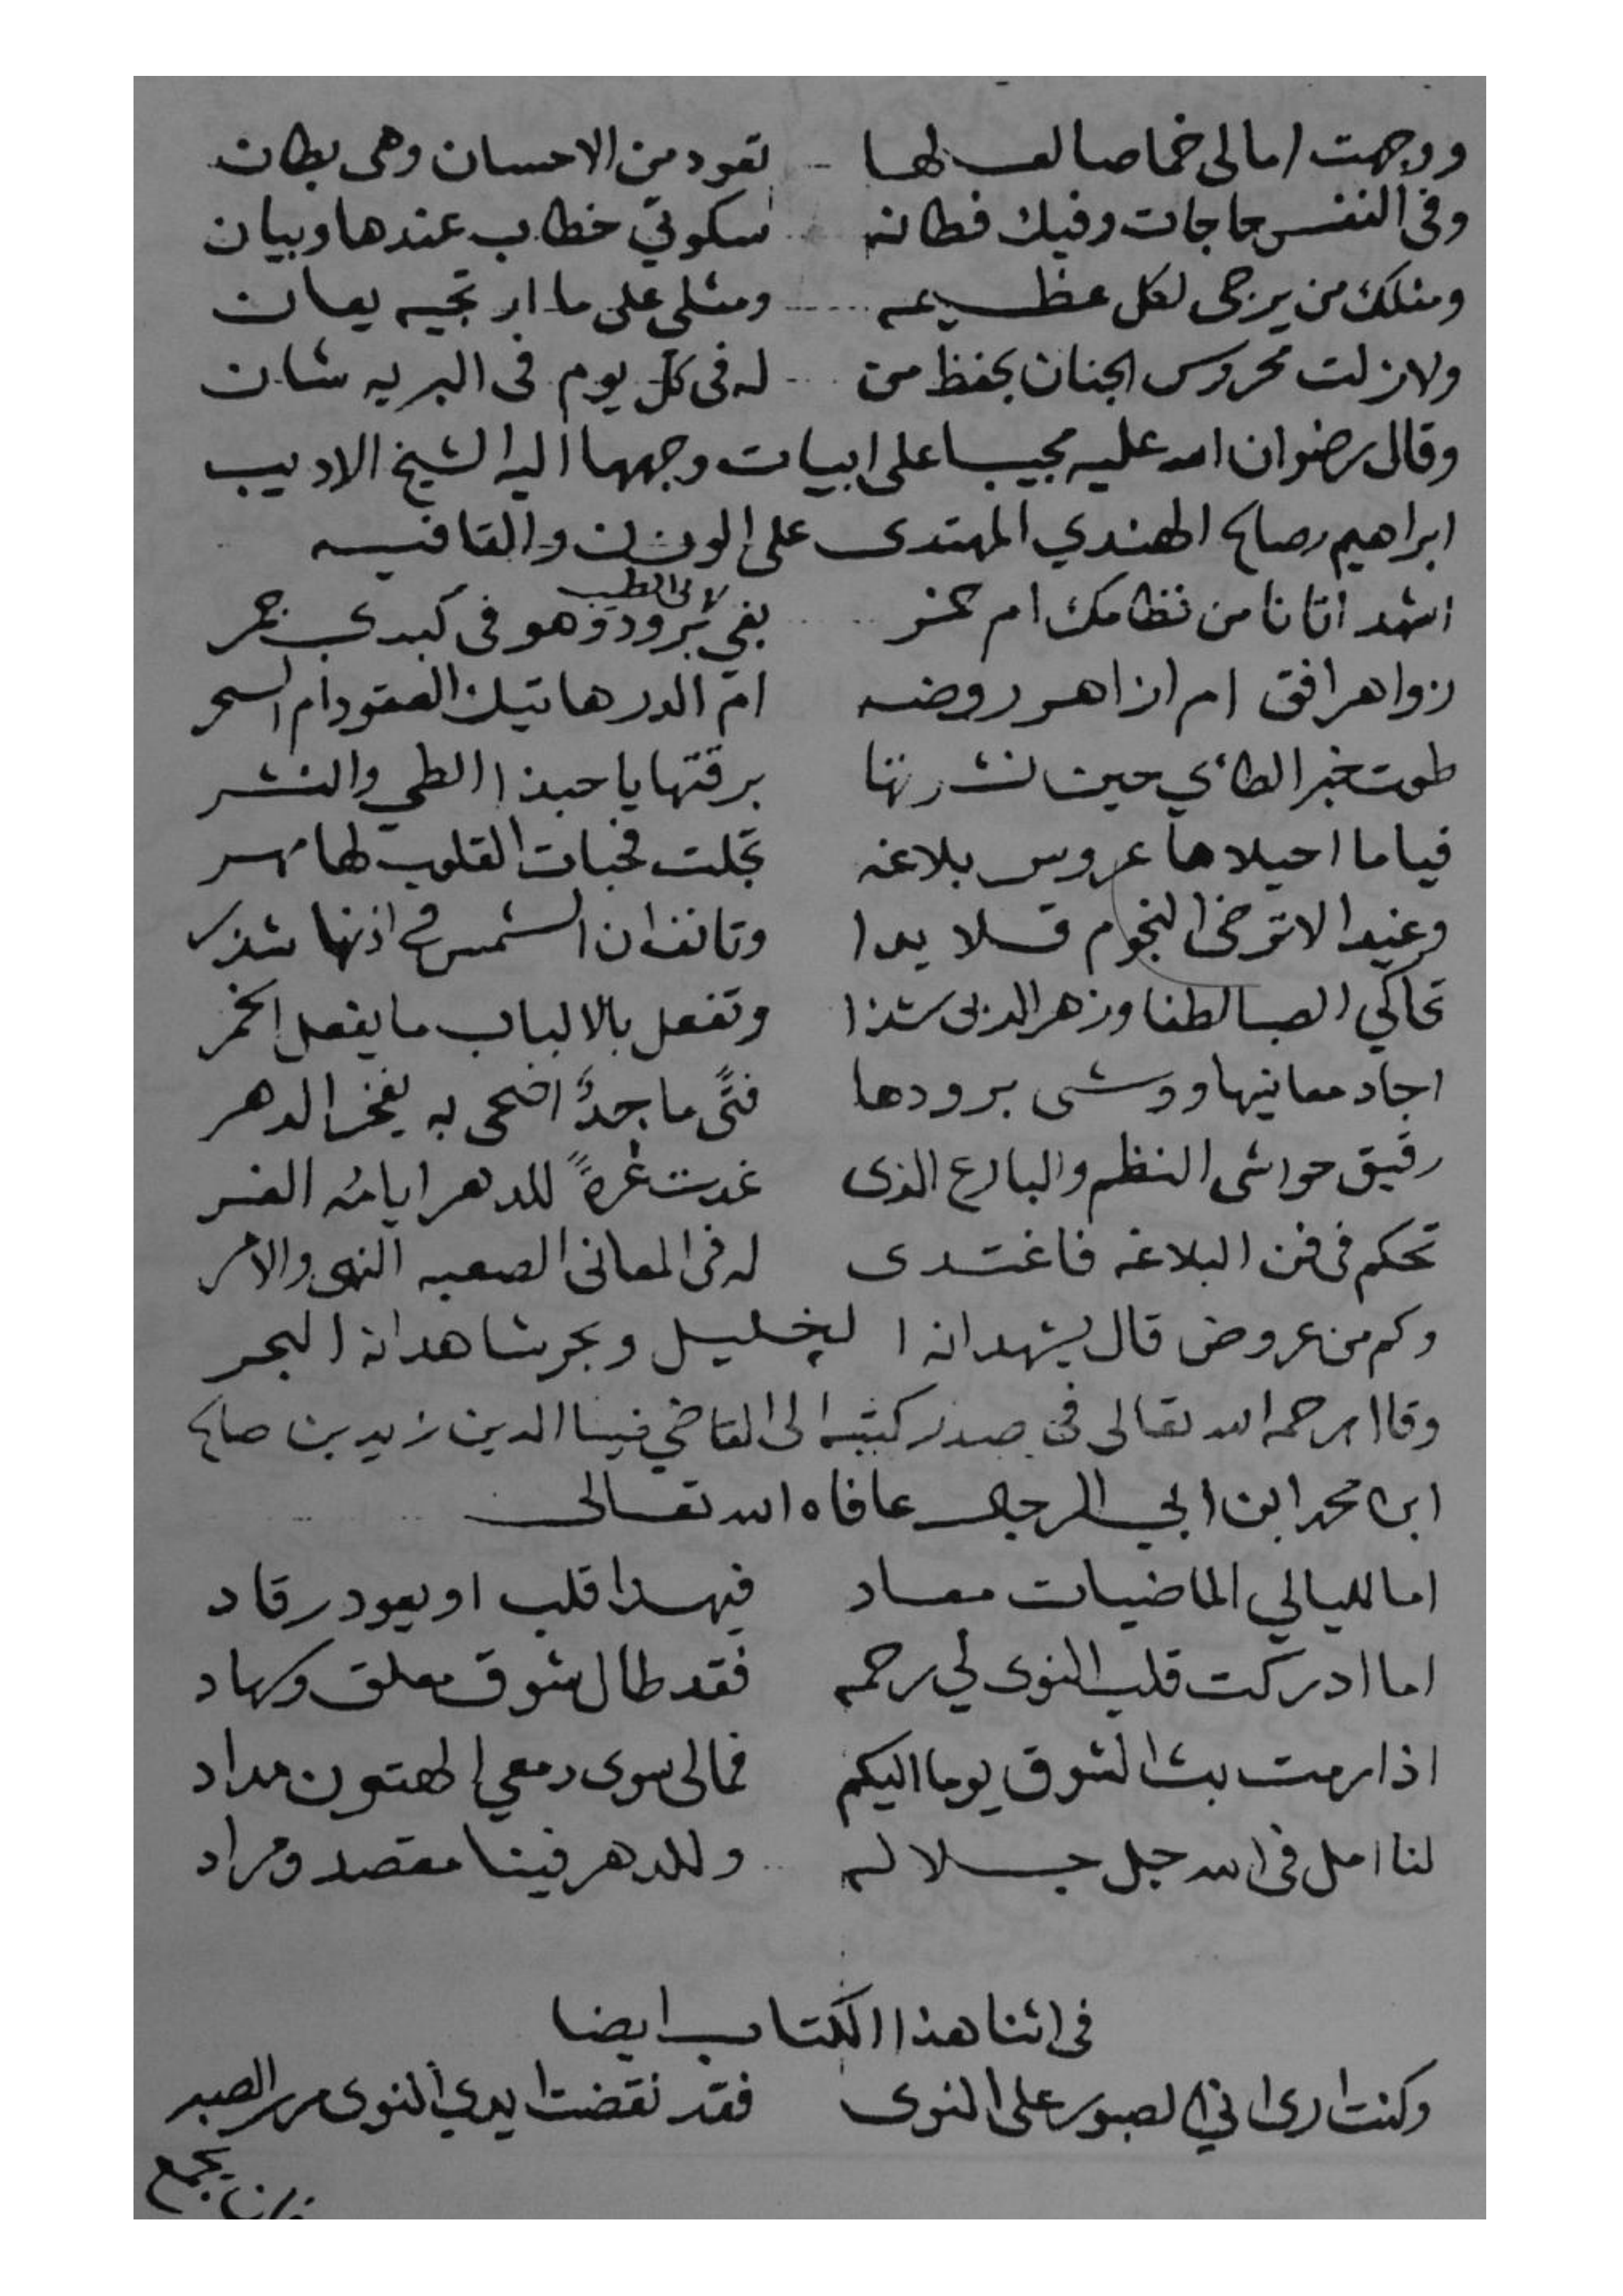 ووجهت امالى خماصا لعلها تعود من الاحسان وهى بطان
وفى النفس حاجات وفيك فطانه سكوتي خطاب عندها وبيان
ومثلك من يرجى لكل عظيمه ومثلى على ما ارتجيه يعان
ولازلت محروس الجنان بحفظ من له فى كل يوم فى البريه شان
وقال رضوان الله عليه مجيبا على ابيات وجهها اليه الشيخ الاديب
ابراهيم صالح الهندي المهتدى على الوزن والقافيه
اشهد اتانا من نظامك ام خمر بفي برود وهو فى كبدي جمر
لابى الطيب
زواهر افق ام ازاهر روضه ام الدر هاتيك العقود ام السحر
طوت خبر الطائي حين نشرتها برقتها يا حبذا الطي والنشر
فياما احيلاها عروس بلاغه تجلت فحبات القلوب لها مهر
وغيدا لا ترضى النجوم قلايدا وتانف ان الشمس في اذنها شذر
تحاكي الصبا لطفا وزهر الربى شذا وتفعل بالالباب ما يفعل الخمر
اجاد معانيها ووشى برودها فتًى ماجدٌ اضحى به يفخر الدهر
رقيق حواشى النظم والبارع الذى غدت غرةً للدهر ايامه الغر
تحكم فى فن البلاغه فاغتدى له فى المعانى الصعبه النهى والامر
وكم من عروض قال يشهد انه ا لخليل وبحر شاهد انه البحر
وقال رحمه الله تعالى فى صدر كتبه الى القاضي ضيا الدين زيد بن صالح
ابن محمد ابن ابي الرجال عافاه الله تعالى
اما لليالي الماضيات معاد فيهدا قلب او يعود رقاد
اما ادركت قلب النوى لي رحمه فقد طال شوق مقلق وسهاد
اذا رمت بث الشوق يوما اليكم فمالى سوى دمعي الهتون مداد
لنا امل فى الله جل جلاله وللدهر فينا مقصد ومراد
فى اثنا هذا الكتاب ايضا
وكنت ارى اني الصبور على النوى فقد نقضت ايدي النوى مرر الصبر
فان يجمع